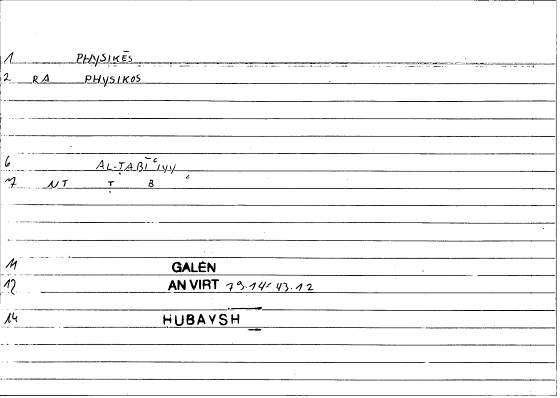 1 PHYSIKĒS
2 RA PHYSIKOS
6 AL-ṬABĪʿIYY
7 NT Ṭ B ʿ
11 GALEN
12 AN VIRT 79.14= 43.12
14 HUBAYSH